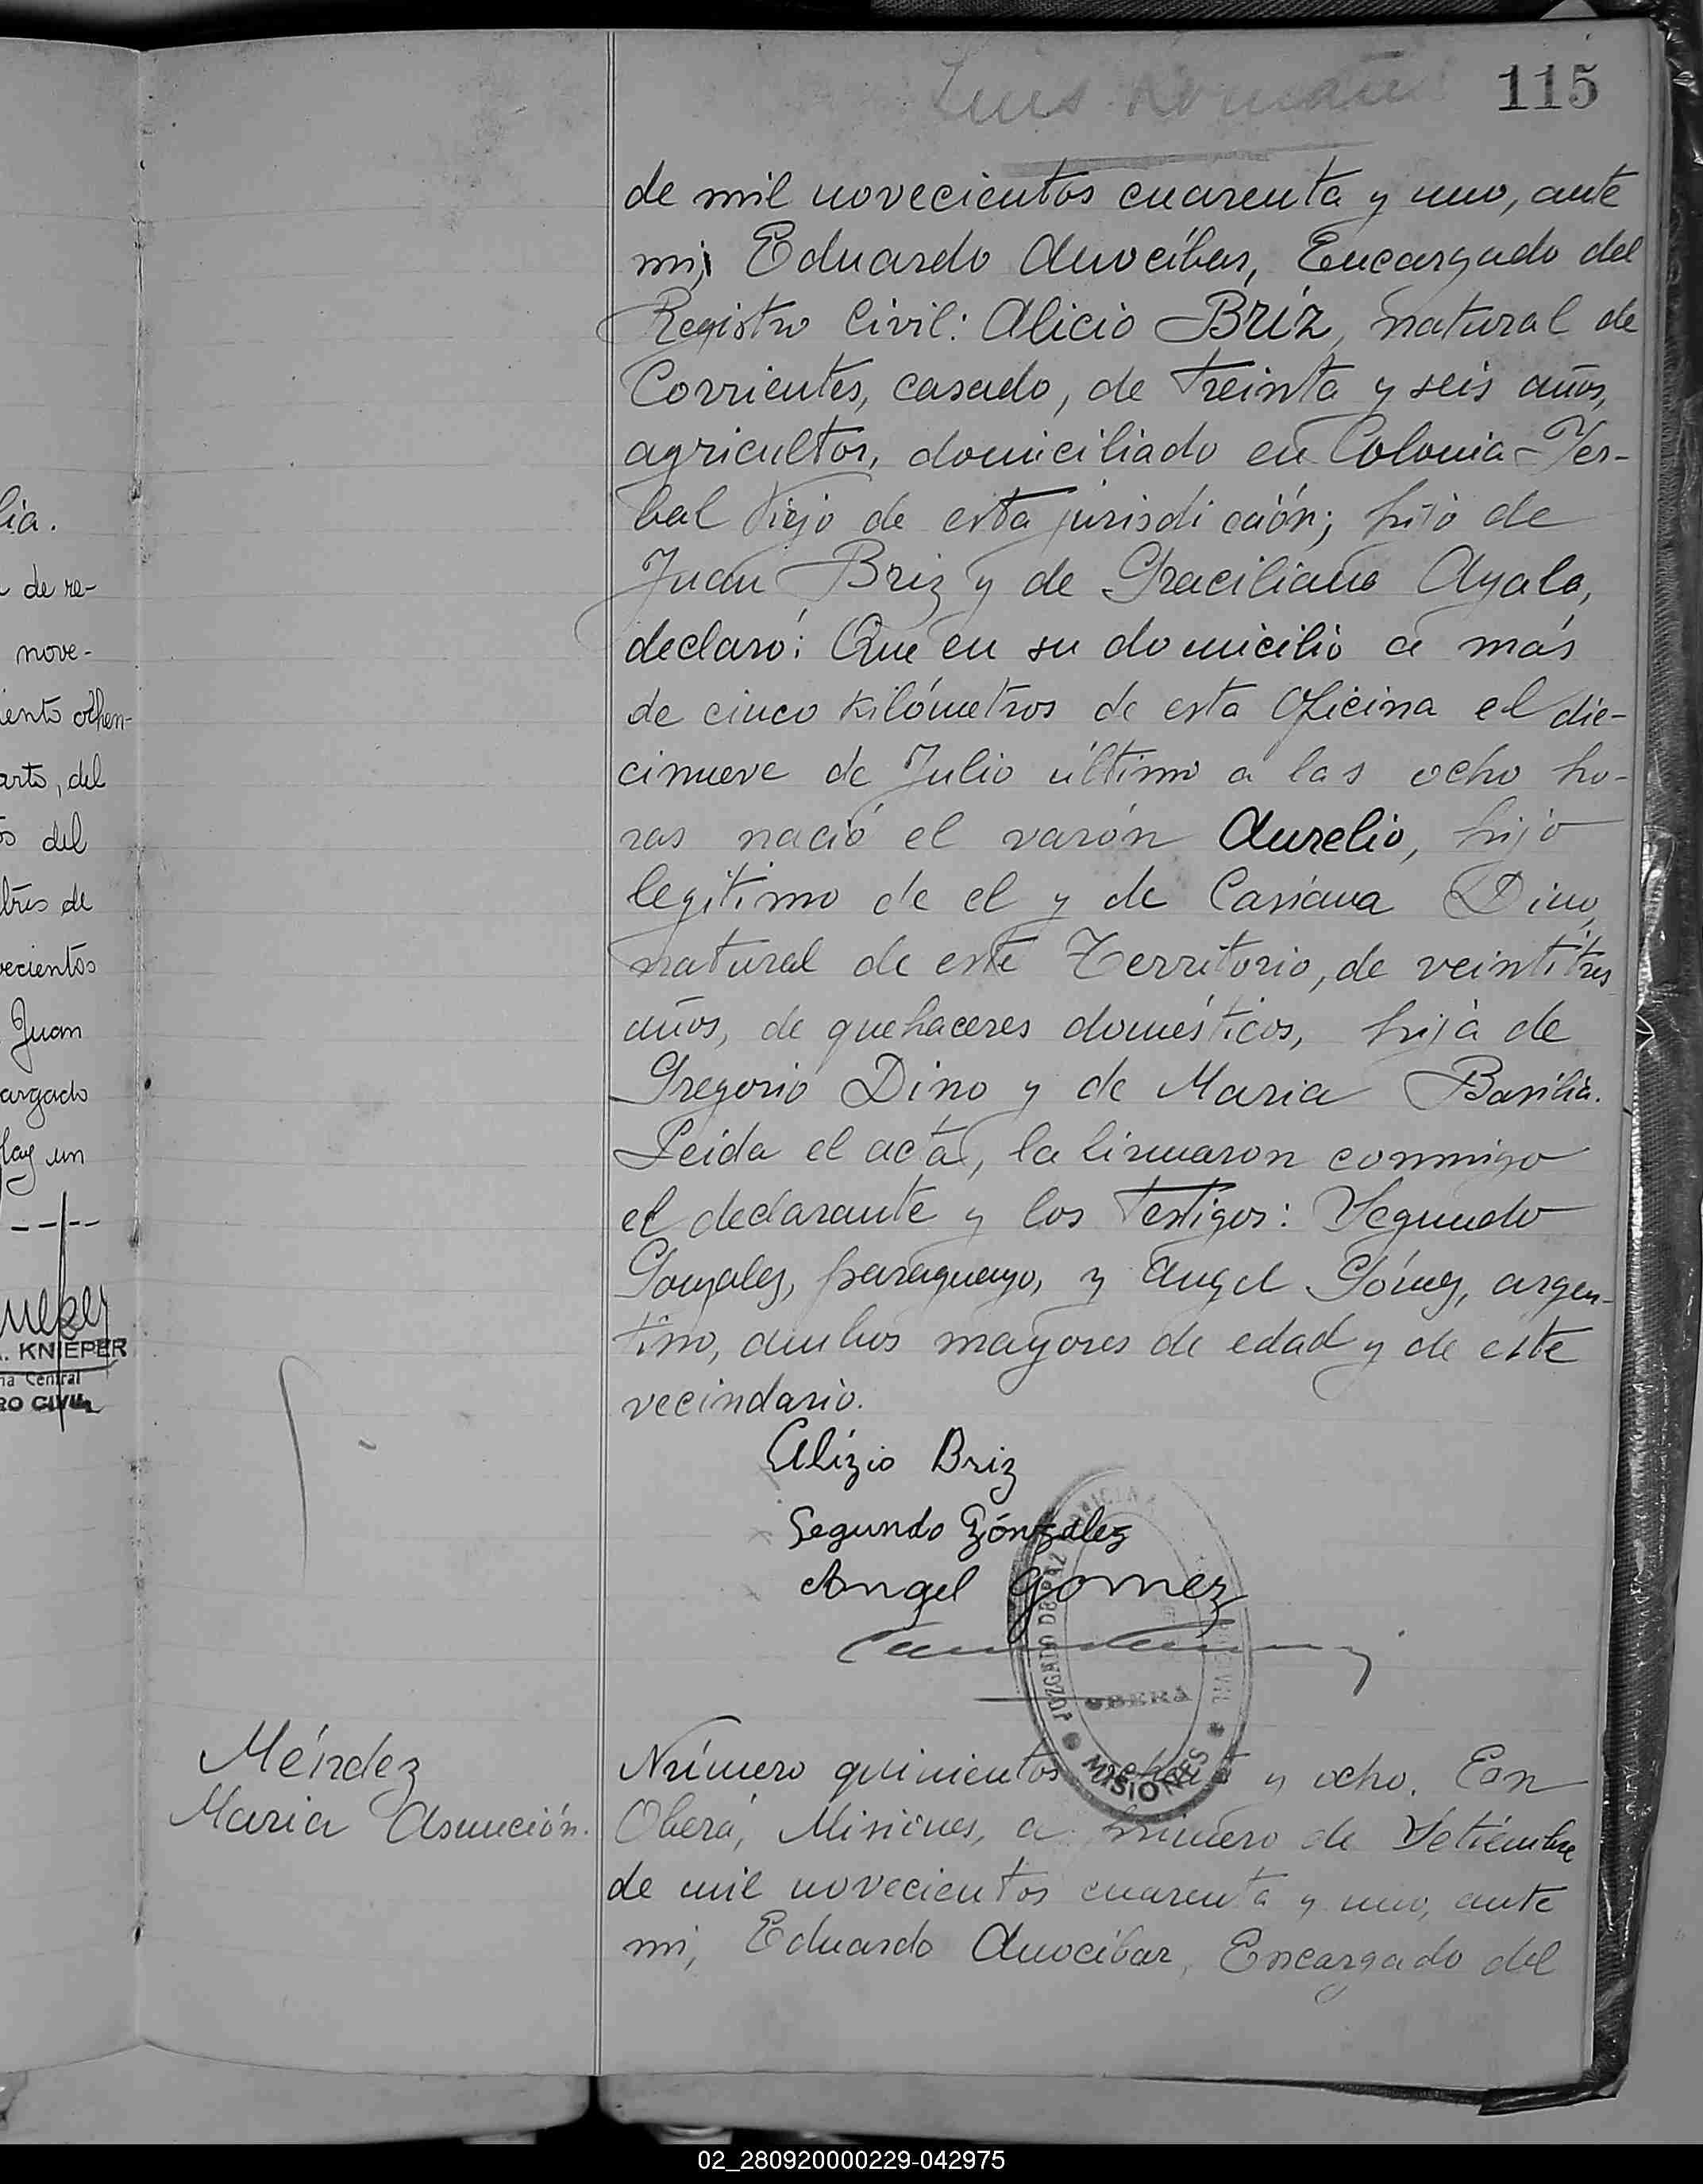 115
Luis
de mil novecientos cuarenta y uno, ante
mi, Eduardo Anocibar, Encargado del
Registro Civil: Alicio Briz, natural de
Corrientes, casado, de treinta y seis años,
agricultor, domiciliado en Colonia Yer-
bal Viejo de esta jurisdicción; hijo de
Juan Briz y de Graciliana Ayala,
declaró: Que en su domicilio a más
de cinco kilómetros de esta Oficina el die-
cinueve de Julio último a las ocho ho-
ras nació el varón Aurelio, hijo
legítimo de el y de Casiana Dino,
natural de este Territorio, de veintitres
años, de quehaceres domésticos, hija de
Gregorio Dino y de Maria Basilia.
Leida el acta, la firmaron conmigo
el declarante y los testigos: Segundo
Gonzalez, paraguayo, y Angel Gómez, argen-
tino, ambos mayores de edad y de este
vecindario.
Alizio Briz
Segundo Gónzalez
Angel Gomez
JUZGADO DE PAZ
OBERÁ
MISIONES
Méndez
Maria Asunción.
Número quinientos y ocho. En
Oberá, Misiones, a primero de Setiembre
de mil novecientos cuarenta y uno, ante
mi, Eduardo Anocibar, Encargado del
lia.
de re-
nove-
iento ochen-
arto, del
os del
bres de
vecientos
Juan
argado
Hay un
A. KNIEPER
na Central
RO CIVIL
02_280920000229-042975